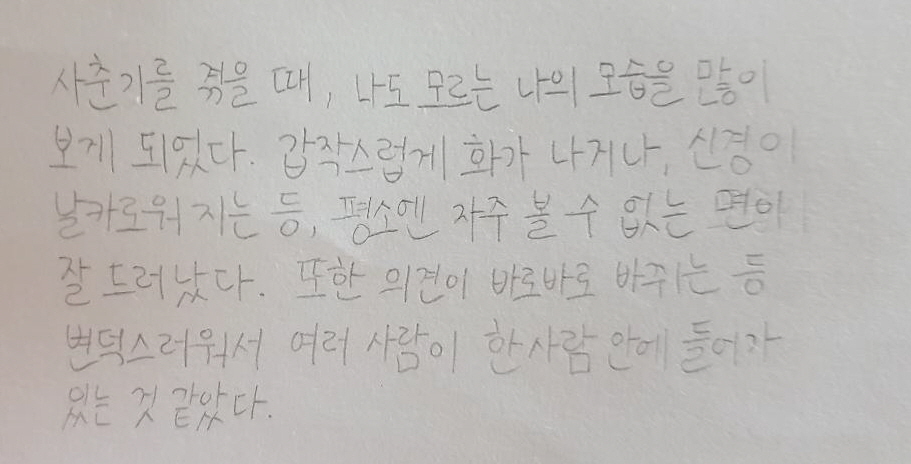 사춘기를 겪을 때, 나도 모르는 나의 모습을 많이
보게 되었다. 갑작스럽게 화가 나거나, 신경이
날카로워 지는 등, 평소엔 자주 볼 수 없는 면이
잘 드러났다. 또한 의견이 바로바로 바뀌는 등
변덕스러워서 여러 사람이 한 사람 안에 들어가
있는 것 같았다.